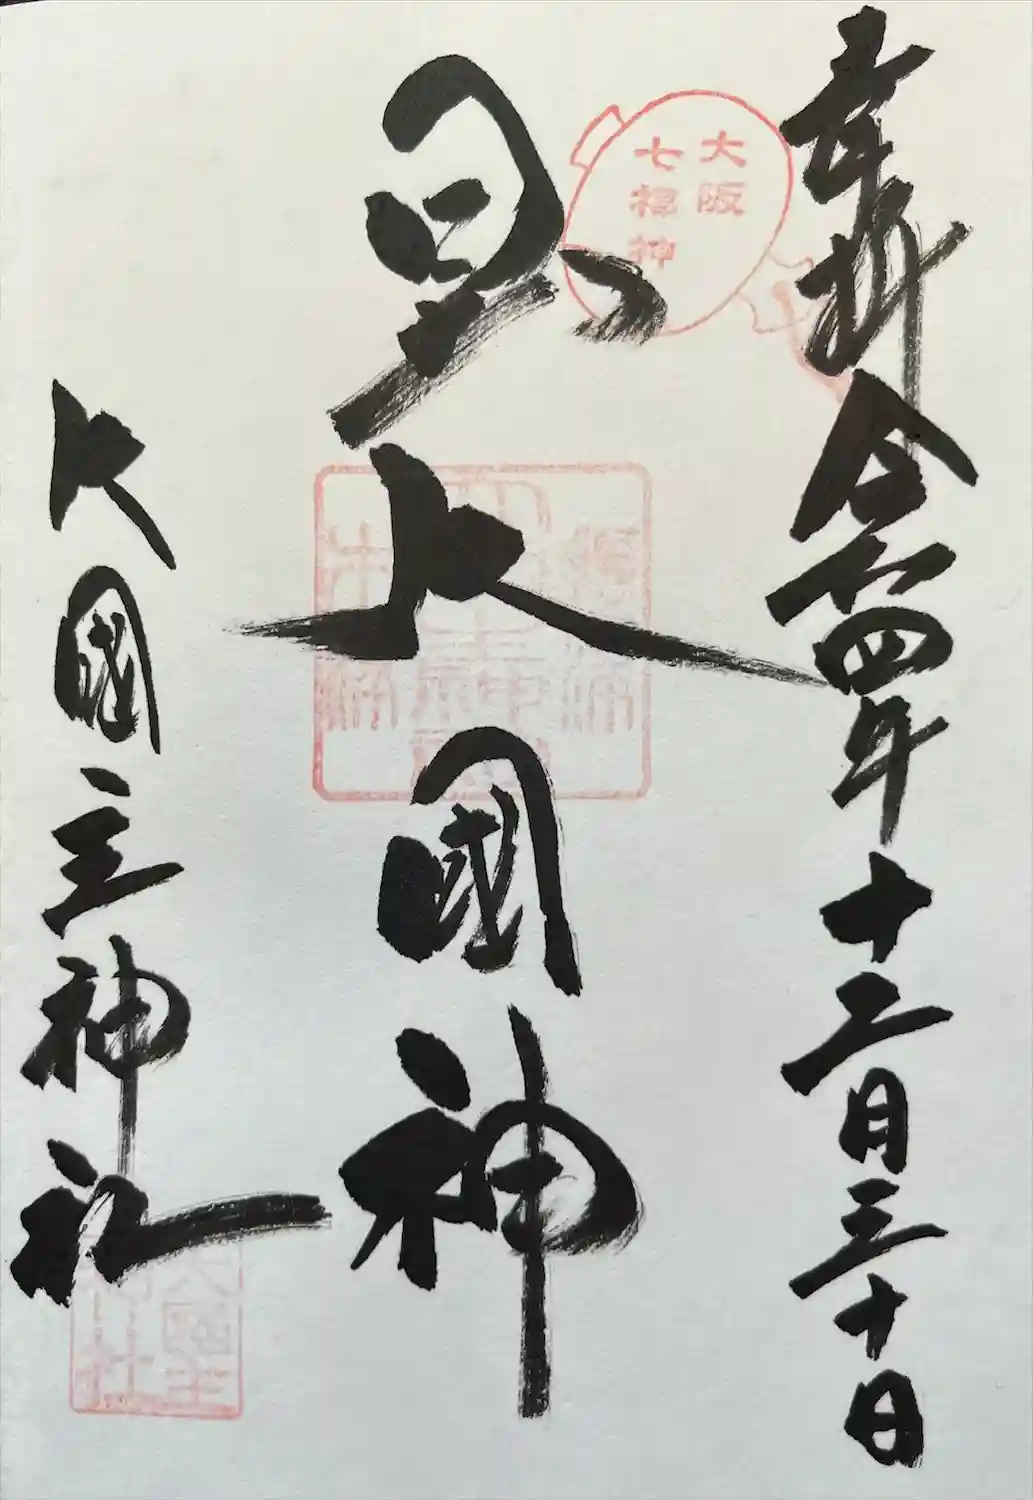 奉拝 令和四年十二月三十日
大阪
七福神
大國神
大國主神社
大國主
神社